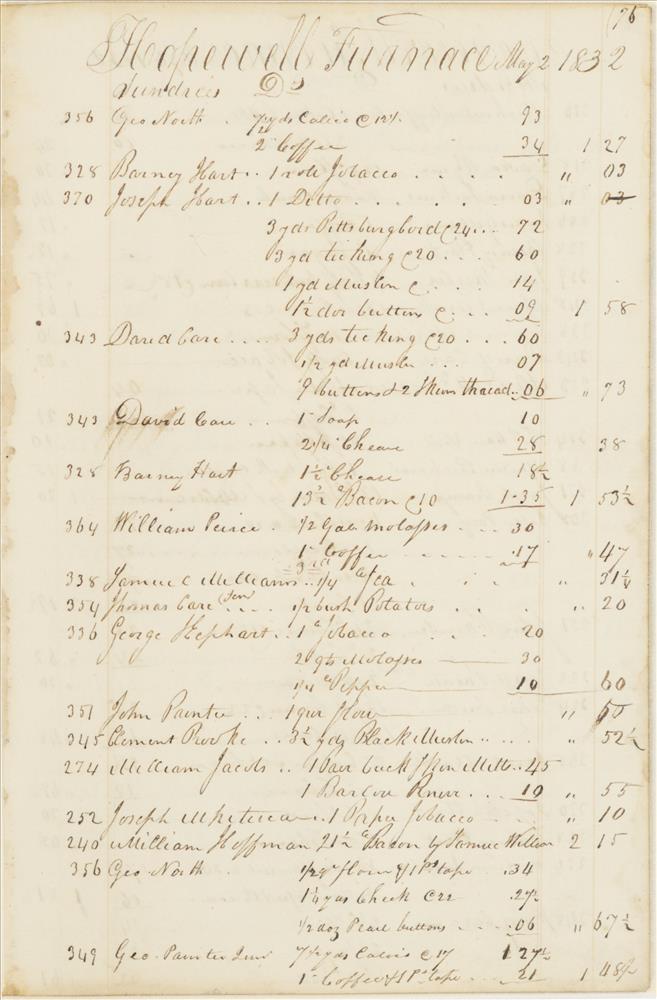 76
Hopewell Furnace May 2 1832
Sundries Drs
356 Geo North . 7½ yds Calico @ 12½ 93
2 " Coffee 34 1 27
328 Barney Hart .. 1 role Tobacco . . . . " 03
370 Joseph Hart .. 1 Ditto . . . . 03 " 03
3 yds Pittsburg Cord @ 24 ... 72
3 yd ticking @ 20 ... 60
1 yd Muslin @ ... 14
1½ doz buttons @ ... 09 1 58
343 David Care .... 3 yds ticking @ 20 ... 60
1/2 yd Muslin ... 07
9 buttons & 2 Skein thread .. 06 " 73
343 David Care .. 1 " Soap 10
2 1/4 " Chease 28 38
328 Barney Hart 1½ " Chease 18½
13½ " Bacon @ 10 1.35 1 53½
364 William Peirce . 1/2 Galn Molasses ... 30
1 " Coffee ..... .17 " 47
338 Samuel Williams .. 1/4 " Tea . . . " 31¼
354 Thomas Care Sen .... 1/2 bush Potatoes . . " 20
336 George Hephart .. 1 " Tobacco . . . 20
2 qts Molasses — 30
1/4 " Pepper — 10 60
351 John Painter ... 1 qur flour — " 50
345 Clement Rorke .. 3½ yds Black Muslin .. .. " 52½
274 William Jacobs .. 1 pair buck Skin Mitts .. 45
1 Barlow Knive ... 10 " 55
252 Joseph .. 1 Paper Tobacco . . . " 10
240 William Hoffman 21½ " Bacon by Samuel William 2 15
356 Geo North . 1/2 qr flour & 1 Ps tape . .34
1¼ yds Check @ 22 .27½
1/2 doz Pearl buttons .... .06 " 67½
349 Geo. Painter Junr 7½ yds Calico @ 17 1 27½
1 " Coffee & 1 Ps tape ... 21 1 48½